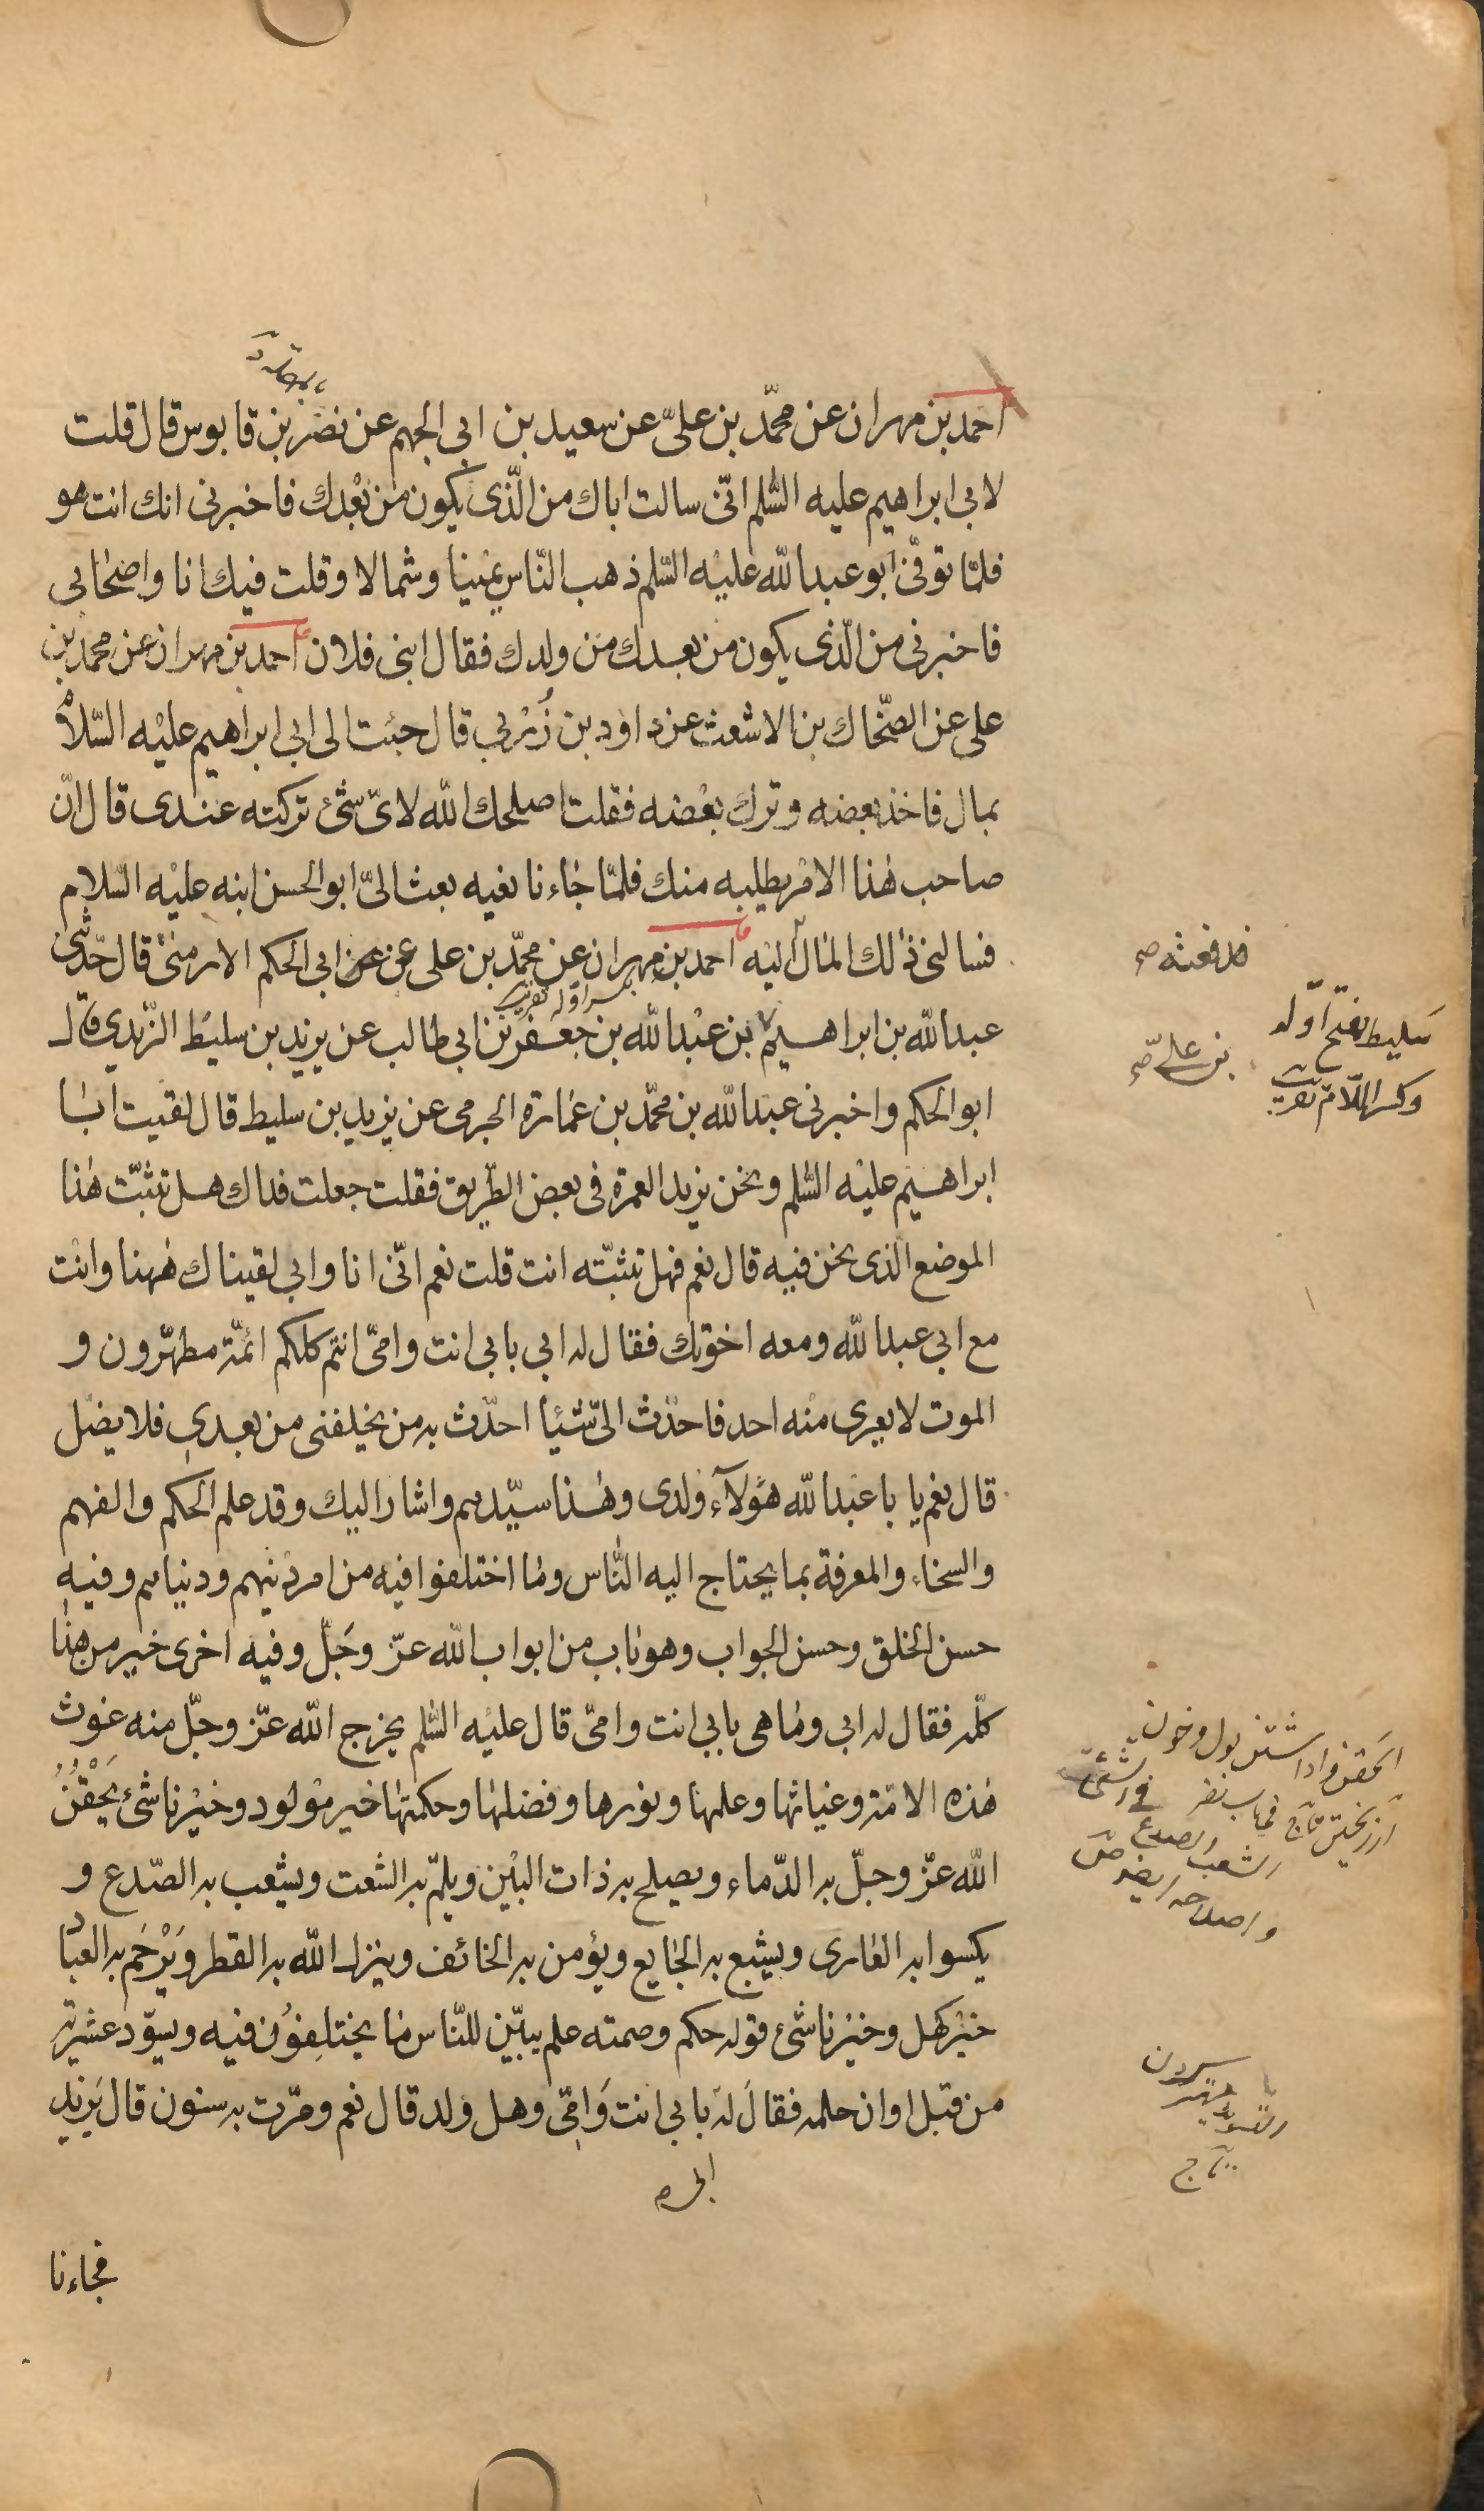 احمد بن مهران عن محمّد بن علىّ عن سعيد بن ابى الجهم عن نصر بن قابوس قال قلت
لابى ابراهيم عليه السّلم انّى سالت اباك من الّذى يكون من بعدك فاخبرنى انك انت هو
فلمّا توفّى ابو عبد الله عليه السّلم ذهب النّاس يمينا وشمالا وقلت فيك انا واصحابى
فاخبرنى من الّذى يكون من بعدك من ولدك فقال ابنى فلان احمد بن مهران عن محمد بن
على عن الضّحاك بن الاشعث عن داود بن زُربى قال جئت الى ابى ابراهيم عليه السّلام
بمال فاخذ بعضه وترك بعضه فقلت اصلحك الله لاىّ شئ تركته عندى قال انّ
صاحب هذا الامر يطلبه منك فلمّا جاءنا نعيه بعث الىّ ابو الحسن ابنه عليه السّلام
فسالنى ذلك المال اليه احمد بن مهران عن محمّد بن على عن عن ابى الحكم الارمنى قال حدّثنى
فدفعته صح
عبد الله بن ابراهيم بن عبد الله بن جعفر بن ابى طالب عن يزيد بن سليط الزّيدى قال
بكسر اوله تقريب
بن علىّ صح
سَليط بفتح اوّله
وكسر اللّام تقريب
ابو الحكم واخبرنى عبد الله بن محمّد بن عمارة الجرمى عن يزيد بن سليط قال لقيت ابا
ابراهيم عليه السّلم ونحن نريد العمرة فى بعض الطّريق فقلت جعلت فداك هل تثبّت هذا
الموضع الذى نحن فيه قال نعم فهل تثبّته انت قلت نعم انّى انا وابى لقيناك ههنا وانت
مع ابى عبد الله ومعه اخوتك فقال له ابى بابى انت وامّى انتم كلكم ائمّة مطهّرون و
الموت لا يعرى منه احد فاحدث الىّ شيئا احدّث به من يخلفنى من بعدى فلا يضل
قال نعم يا با عبد الله هؤلآء ولدى وهذا سيّدهم واشار اليك وقد علم الحكم والفهم
والسخاء والمعرفة بما يحتاج اليه النّاس وما اختلفوا فيه من امر دينهم ودنياهم وفيه
حسن الخلق وحسن الجواب وهو باب من ابواب الله عزّ وجَلّ وفيه اخرى خير من هذا
كلّه فقال له ابى وما هى بابى انت وامّى قال عليه السّلم يخرج الله عزّ وجلّ منه غوث
هذه الامّة وغياثها وعلمها ونورها وفضلها وحكمتها خير مولود وخير ناشئ يَحْقُنُ
الله عزّ وجلّ به الدّماء ويصلح به ذات البين ويلمّ به الشعث ويشعب به الصّدع و
يكسوا به العارى ويشبع به الجايع ويؤمن به الخائف وينزل الله به القطر ويَرْحَم به العباد
خير كهل وخير ناشئ قوله حكم وصمته علم يبيّن للنّاس ما يختلفون فيه ويسوّد عشيرته
من قبل اوان حلمه فقال له بابى انت وامّى وهل ولد قال نعم ومرّت به سنون قال يَزيد
ابى صح
فجاءنا